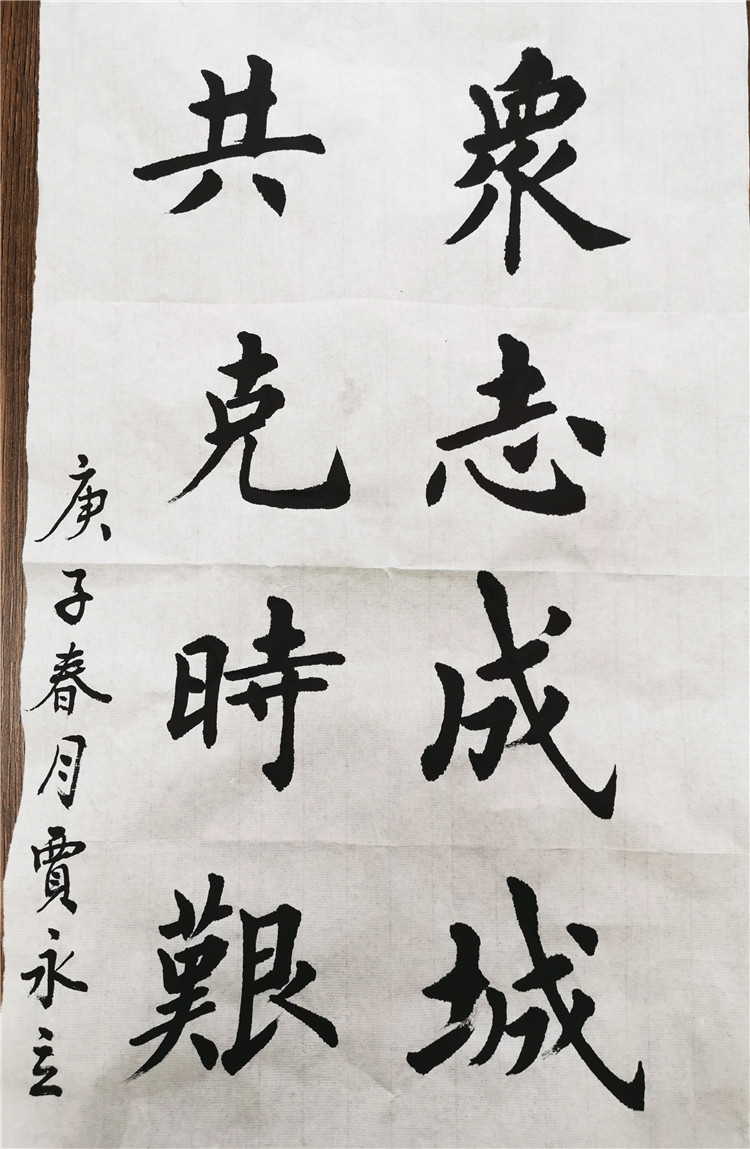 衆志成城
共克時艱
庚子春月賈永立